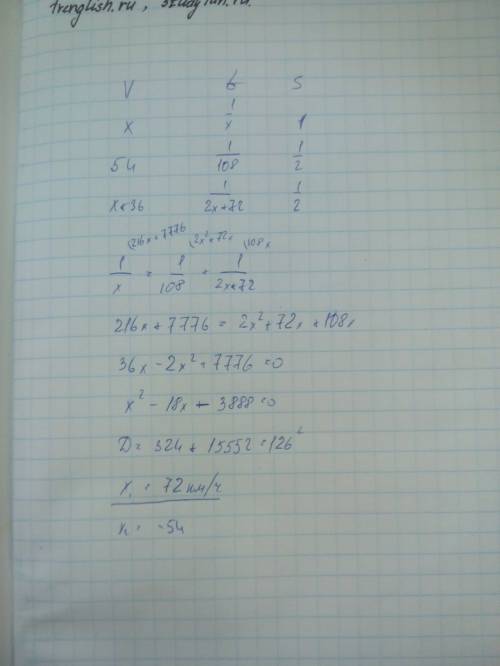 trenglish.ru, studyfun.ru.
V t S
x 1/x 1
54 1/108 1/2
x+36 1/2x+72 1/2
(216x+7776 (2x²+72x (108x
1/x = 1/108 + 1/2x+72
216x+7776 = 2x²+72x+108x
36x-2x²+7776=0
x²-18x-3888=0
D=324+15552=126²
x₁=72км/ч
x₂=-54